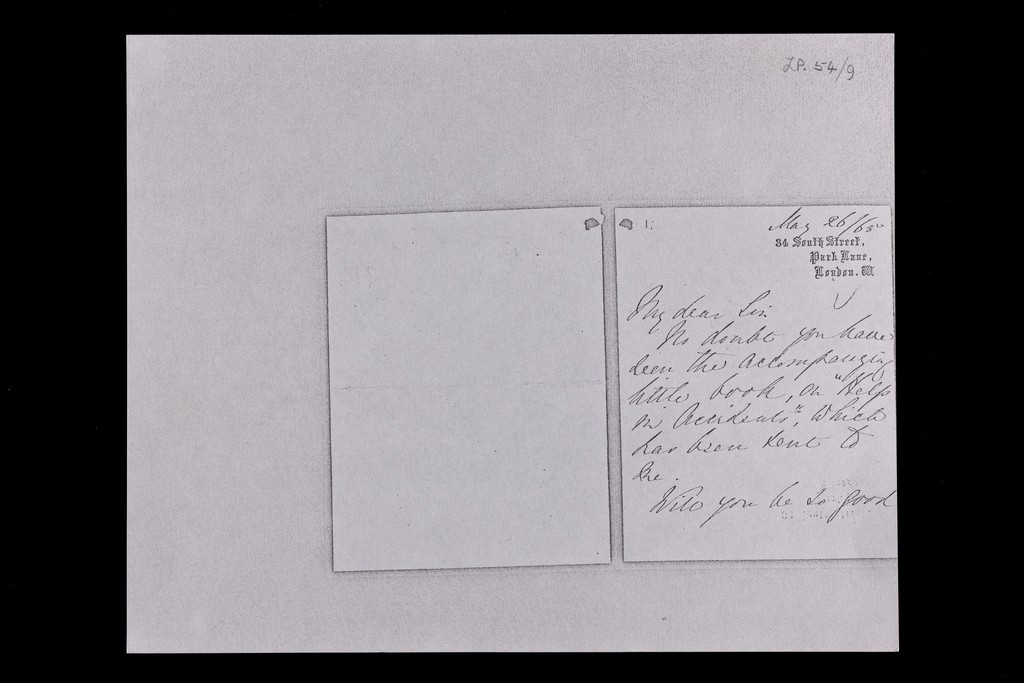 LP. 54/9
1.
May 26/65
34 South Street,
Park Lane,
London. W.
My dear Sir
No doubt you have
seen the accompanying
little book, on "Help
in Accidents", which
has been sent to
me.
Will you be so good